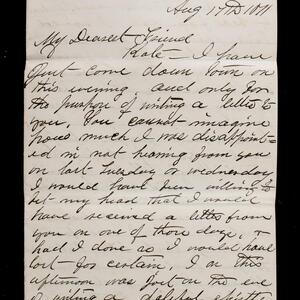 Aug 17th 18
My Dearest Friend
Kate - I have
Just come down town on
this evening and only for
the purpose of writing a letter to
you. You cannot imagine
how much I was disappoint-
ed in not hearing from you
on last Tuesday or wednesday
I would have been willing to
bet my head that I would
have received a letter from
you on one of those days, &
had I done as I would have
lost - for certain, I on this
afternoon was Just on the eve
of writing a